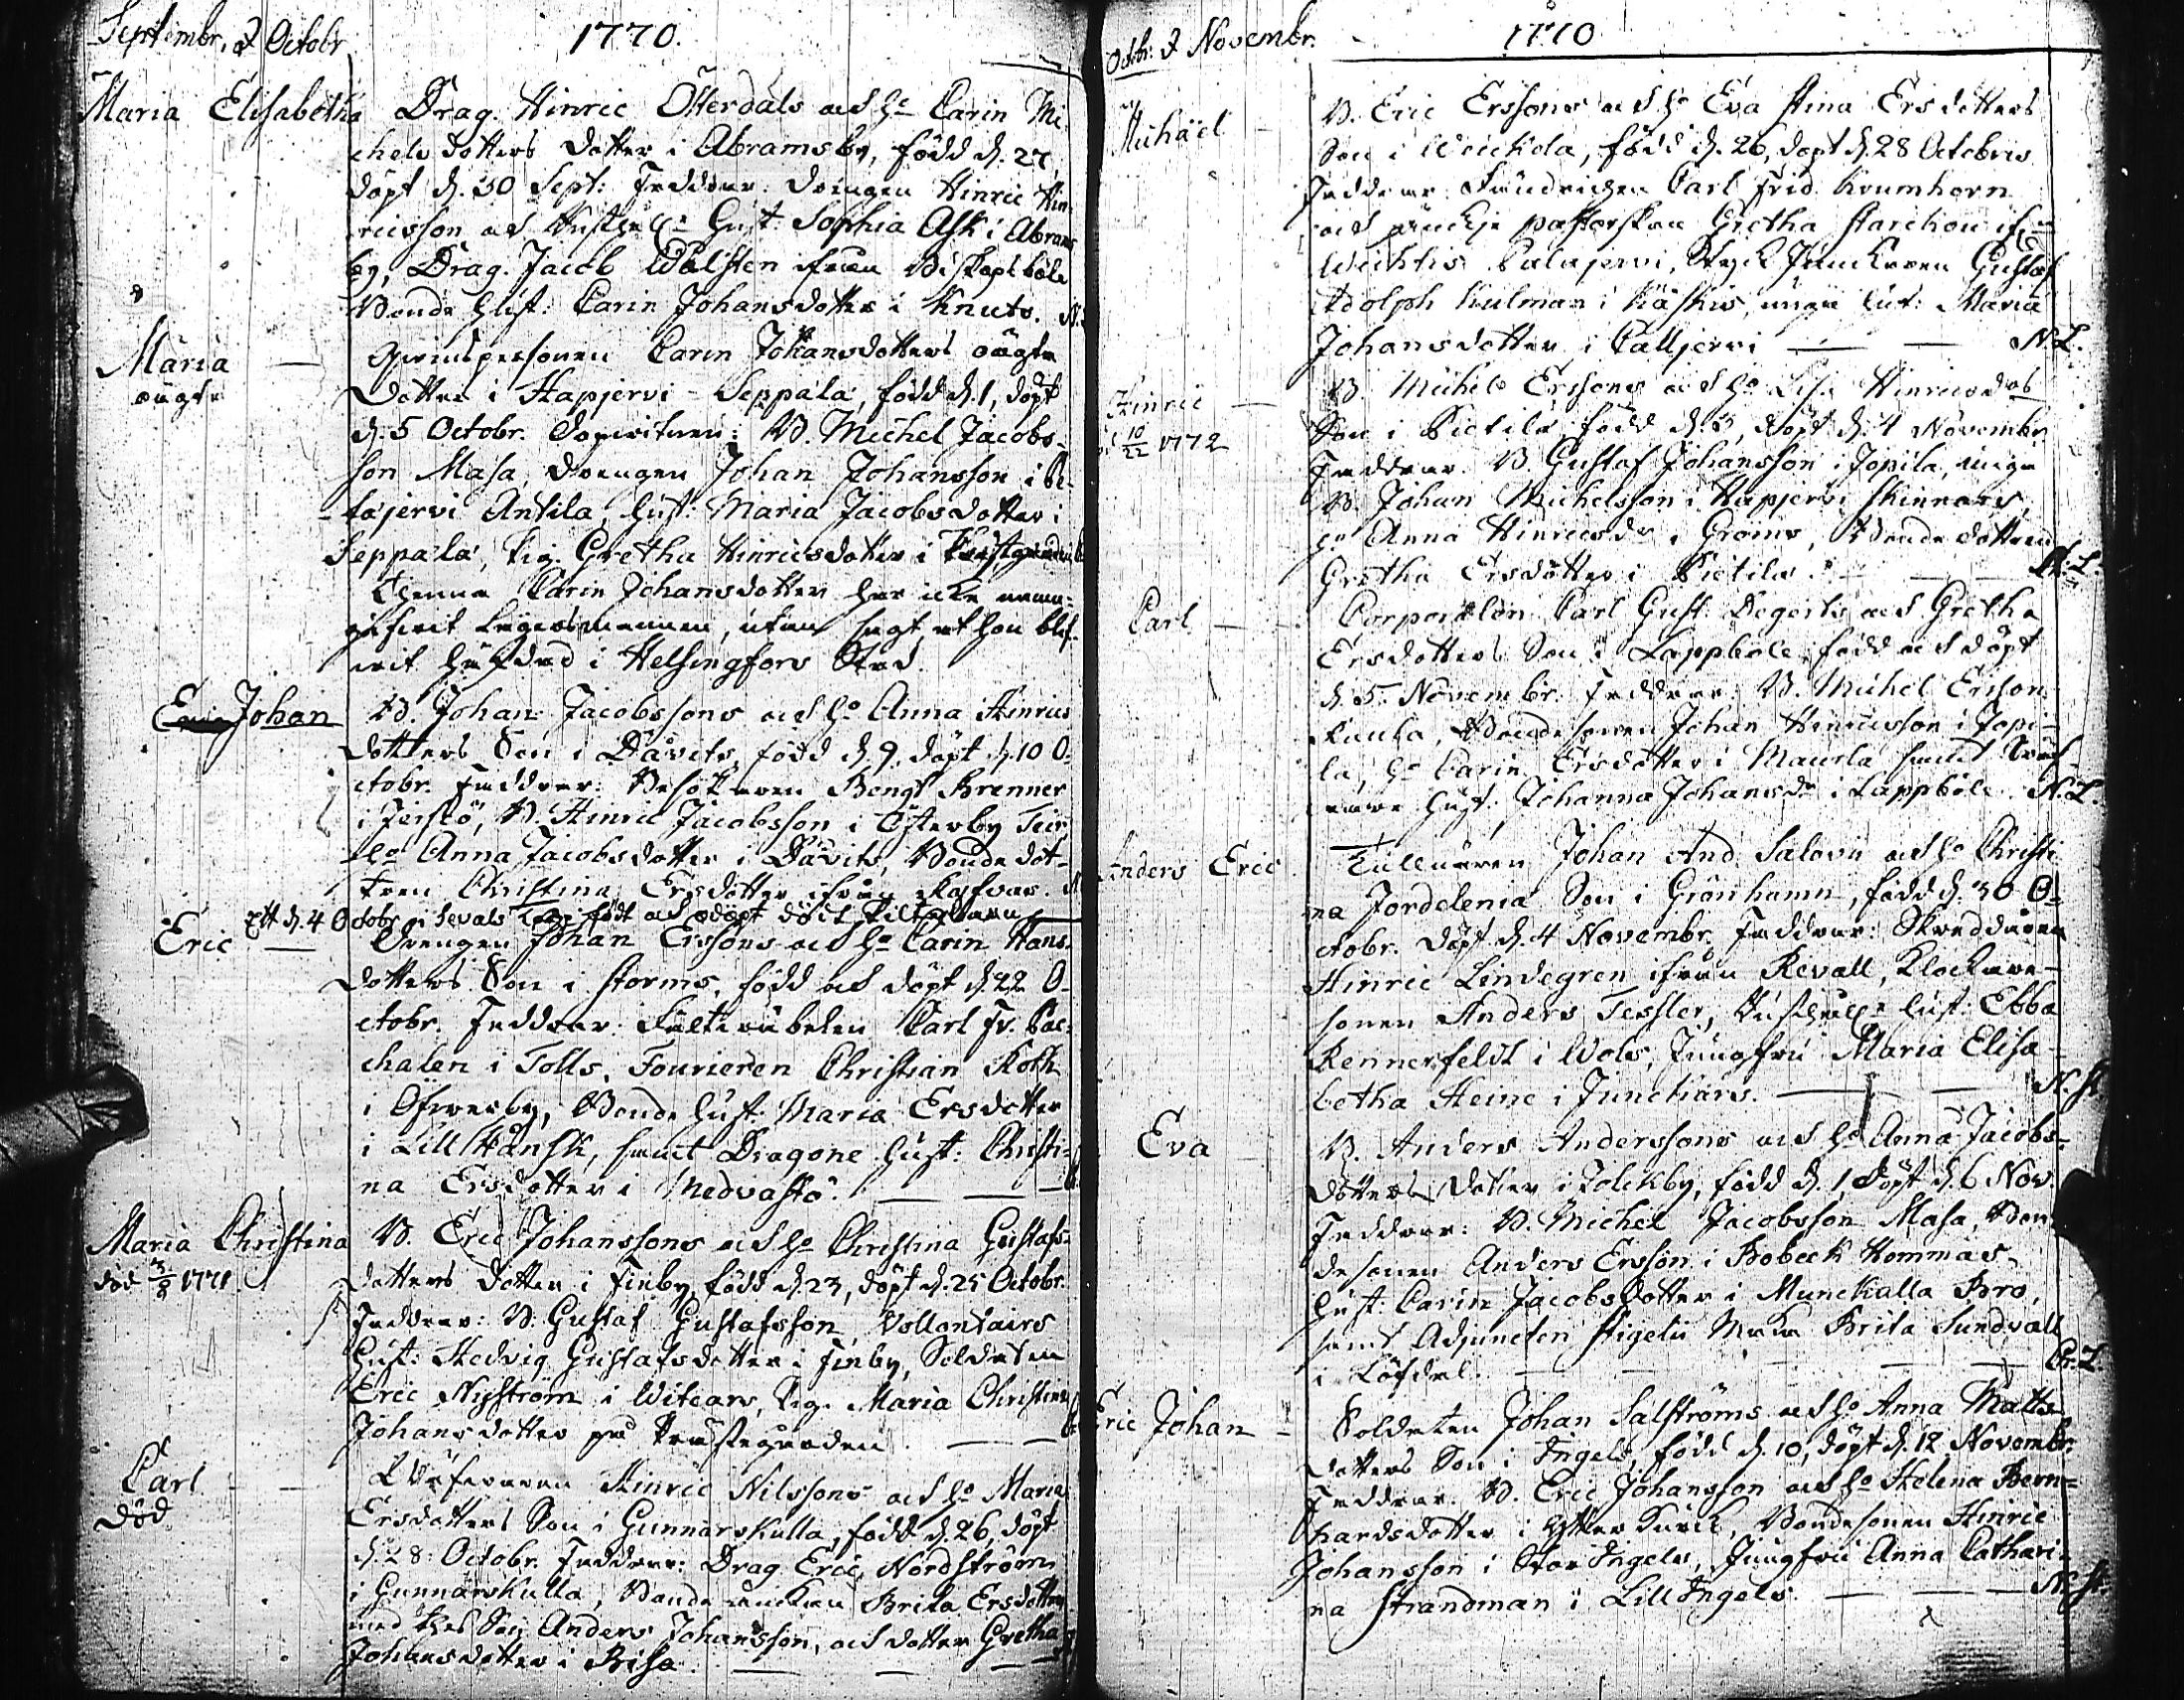 Septembr. & Octobr. 1770.
Maria Elisabetha Drag. Hinric Österdals och h:o Carin Mi-
chels dotters dotter i Abramsby, född d. 27
döpt d. 30 Sept: Faddrar: drängen Hinric Hin-
ricsson och Hust: Sophia Ask i Abrams
by, Drag. Jacob Wälsten ifrån Biskopsböle
Bonde hust: Carin Johansdotter i Knuts.
Maria oägta Qvinspersonen Carin Johansdotters oägta
dotter i Hapjervi-Seppälä, född d. 1, döpt
d. 5 Octobr. Dopvitnen: B. Michel Jacobs-
son Masa, drengen Johan Johansson i
tajervi Antila, hust: Maria Jacobsdotter i
Seppälä, Pig. Gretha Hinricsdotter i
Thenna Carin Johansdotter har icke
Lägersmannen, utan sagt at hon blif-
vit häfdad i Helsingfors Stad.
Johan B. Johan Jacobssons och h:o Anna Hinrics
dotters Son i Davits, född d. 9, döpt d. 10 O-
ctobr. Faddrar: Besökaren Bengt Brenner
i B. Hinric Jacobsson i Österby
h:o Anna Jacobsdotter i Davits, Bonde dot-
tren Christina Ersdotter ifrån
Ett d. 4 Octobr. i Sevals födt och odöpt
Eric Drengen Johan Erssons och h:o Carin Hans-
dotters Son i Storms, född och döpt d. 22 O-
ctobr. Faddrar: Carl Fr. Pac-
chalen i Tolls, Fourieren Christian Roth
i Öfverby, Bonde hust: Maria Ersdotter
i Lill Hånsk, samt Dragone hust: Christi-
na Ersdotter i Medvastö.
Maria Christina B. Eric Johanssons och h:o Christina Gustafs-
död 3/8 1771 dotters dotter i Finby, född d. 23, döpt d. 25 Octobr.
Faddrar: B. Gustaf Gustafsson, Vollontairs
Hust: Hedvig Gustafsdotter i Finby, Soldaten
Eric Nyström i Witcars, Pig. Maria Christina
Johansdotter på Prästegården
Carl Hinric Nilssons och h:o Maria
död Ersdotters Son i Gunnarskulla, född d. 26, döpt
d. 28 Octobr. Faddrar: Drag. Eric Nordström
i Gunnarskulla, Bonde enkan Brita Ersdotter
med thes Son Anders Johansson, och dotter Gretha
Johansdotter i Risa.
Octbr: & Novembr. 1770
Michäel B. Eric Erssons och h:o Eva Stina Ersdotters
Son i Weickola, född d. 26, döpt d. 28 Octobris
Faddrar: Fändrichen Carl Frid. Krumhorn
och Gretha Starckou ifrån
Wichtis Palajervi, Styck Junckaren Gustaf
Adolph Kulman i Käskis, unga hust: Maria
Johansdotter i Calljervi N. L.
Hinric B. Michels Erssons och h:o Lisa Hinricsdos
10/22 1772 Son i Pietilä född d. 3, döpt d. 4 Novembr
Faddrar: B. Gustaf Johansson i Jopila, unga
B. Johan Michelsson i Hapjervi Skinnars,
h:o Anna Hinricsdr i Groms, Bonde dottren
Gretha Ersdotter i Pietilä.
Carl Corporalen Carl Gust. Degerts och Gretha
Ersdotters Son i Lappböle, född och döpt
d. 5. Novembr. Faddrar: B. Michel Ersson
Bonde sonen Johan Hinricsson i Jopi-
la, h:o Carin Ersdotter i Maurla samt
hust: Johanna Johansdr i Lappböle. N. L.
Anders Eric Johan And. Salovii och h:o Christi
na Jordelenia Son i Grönhamn, född d. 30 O-
ctobr. döpt d. 4 Novembr. Faddrar: Skräddaren
Hinric Lindegren ifrån Revall, Klockare-
sonen Anders Tessler, hust: Ebba
Rennerfeldt i Wols, Jungfru Maria Elisa-
betha Heine i Junckars. N. St.
Eva B. Anders Anderssons och h:o Anna Jacobs-
dotters dotter i Jolckby, född d. 1, döpt d. 6 Nov.
Faddrar: B. Michel Jacobsson Masa, Bon-
desonen Anders Ersson i Bobeck Hommas,
hust: Carin Jacobsdotter i Munckulla Bro,
samt Adjuncten Stigelii Maka Brita Sundvall
i Löfdal.
Eric Johan Soldaten Johan Salströms och h:o Anna Matts-
dotters Son i Ingels, född d. 10, döpt d. 12 Novembr.
Faddrar: B. Eric Johansson och h:o Helena Bern-
hardsdotter i Ytter Kurck, Bondesonen Hinric
Johansson i Stor Ingels, Jungfru Anna Cathari-
na Strandman i Lill Ingels. N. St.